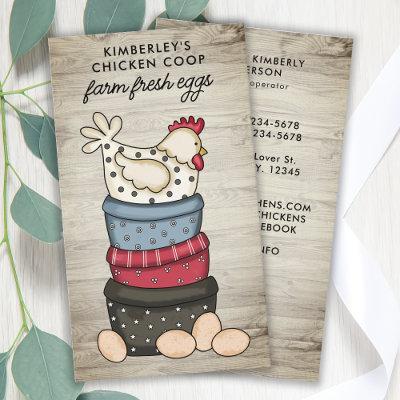 KIMBERLEY'S
CHICKEN COOP
farm fresh eggs
KIMBERLY
ERSON
operator
234-5678
234-5678
Lover St.
Y. 12345
HENS.COM
CHICKENS
EBOOK
INFO